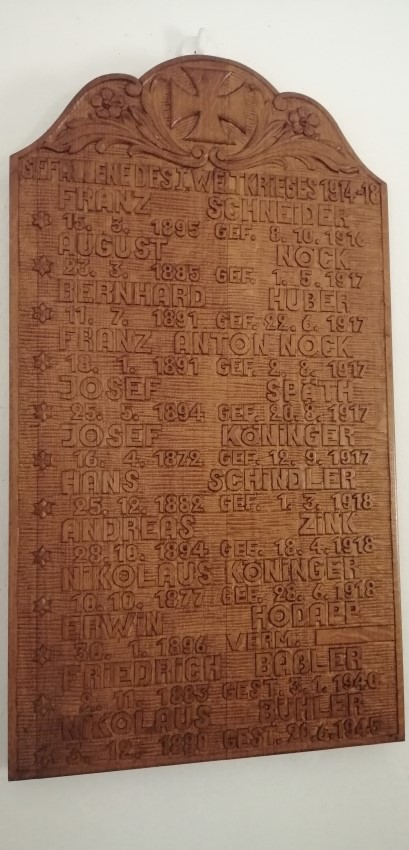 GEFALLENE DES I. WELTKRIEGES 1914-18
FRANZ SCHNEIDER
15. 5. 1895 GEF. 8. 10. 1916
AUGUST NOCK
23. 3. 1885 GEF. 1. 5. 1917
BERNHARD HUBER
11. 7. 1891 GEF. 22. 6. 1917
FRANZ ANTON NOCK
18. 1. 1891 GEF. 2. 8. 1917
JOSEF SPÄTH
25. 5. 1894 GEF. 20. 8. 1917
JOSEF KÖNINGER
16. 4. 1872 GEF. 12. 9. 1917
HANS SCHINDLER
25. 12. 1882 GEF. 1. 3. 1918
ANDREAS ZINK
28. 10. 1894 GEF. 18. 4. 1918
NIKOLAUS KÖNINGER
10. 10. 1877 GEF. 28. 6. 1918
ERWIN HODAPP
30. 1. 1896 VERM.
FRIEDRICH BAßLER
11. 1883 GEST. 3. 1. 1940
NIKOLAUS BÜHLER
3. 12. GEST. 20. 6. 1945